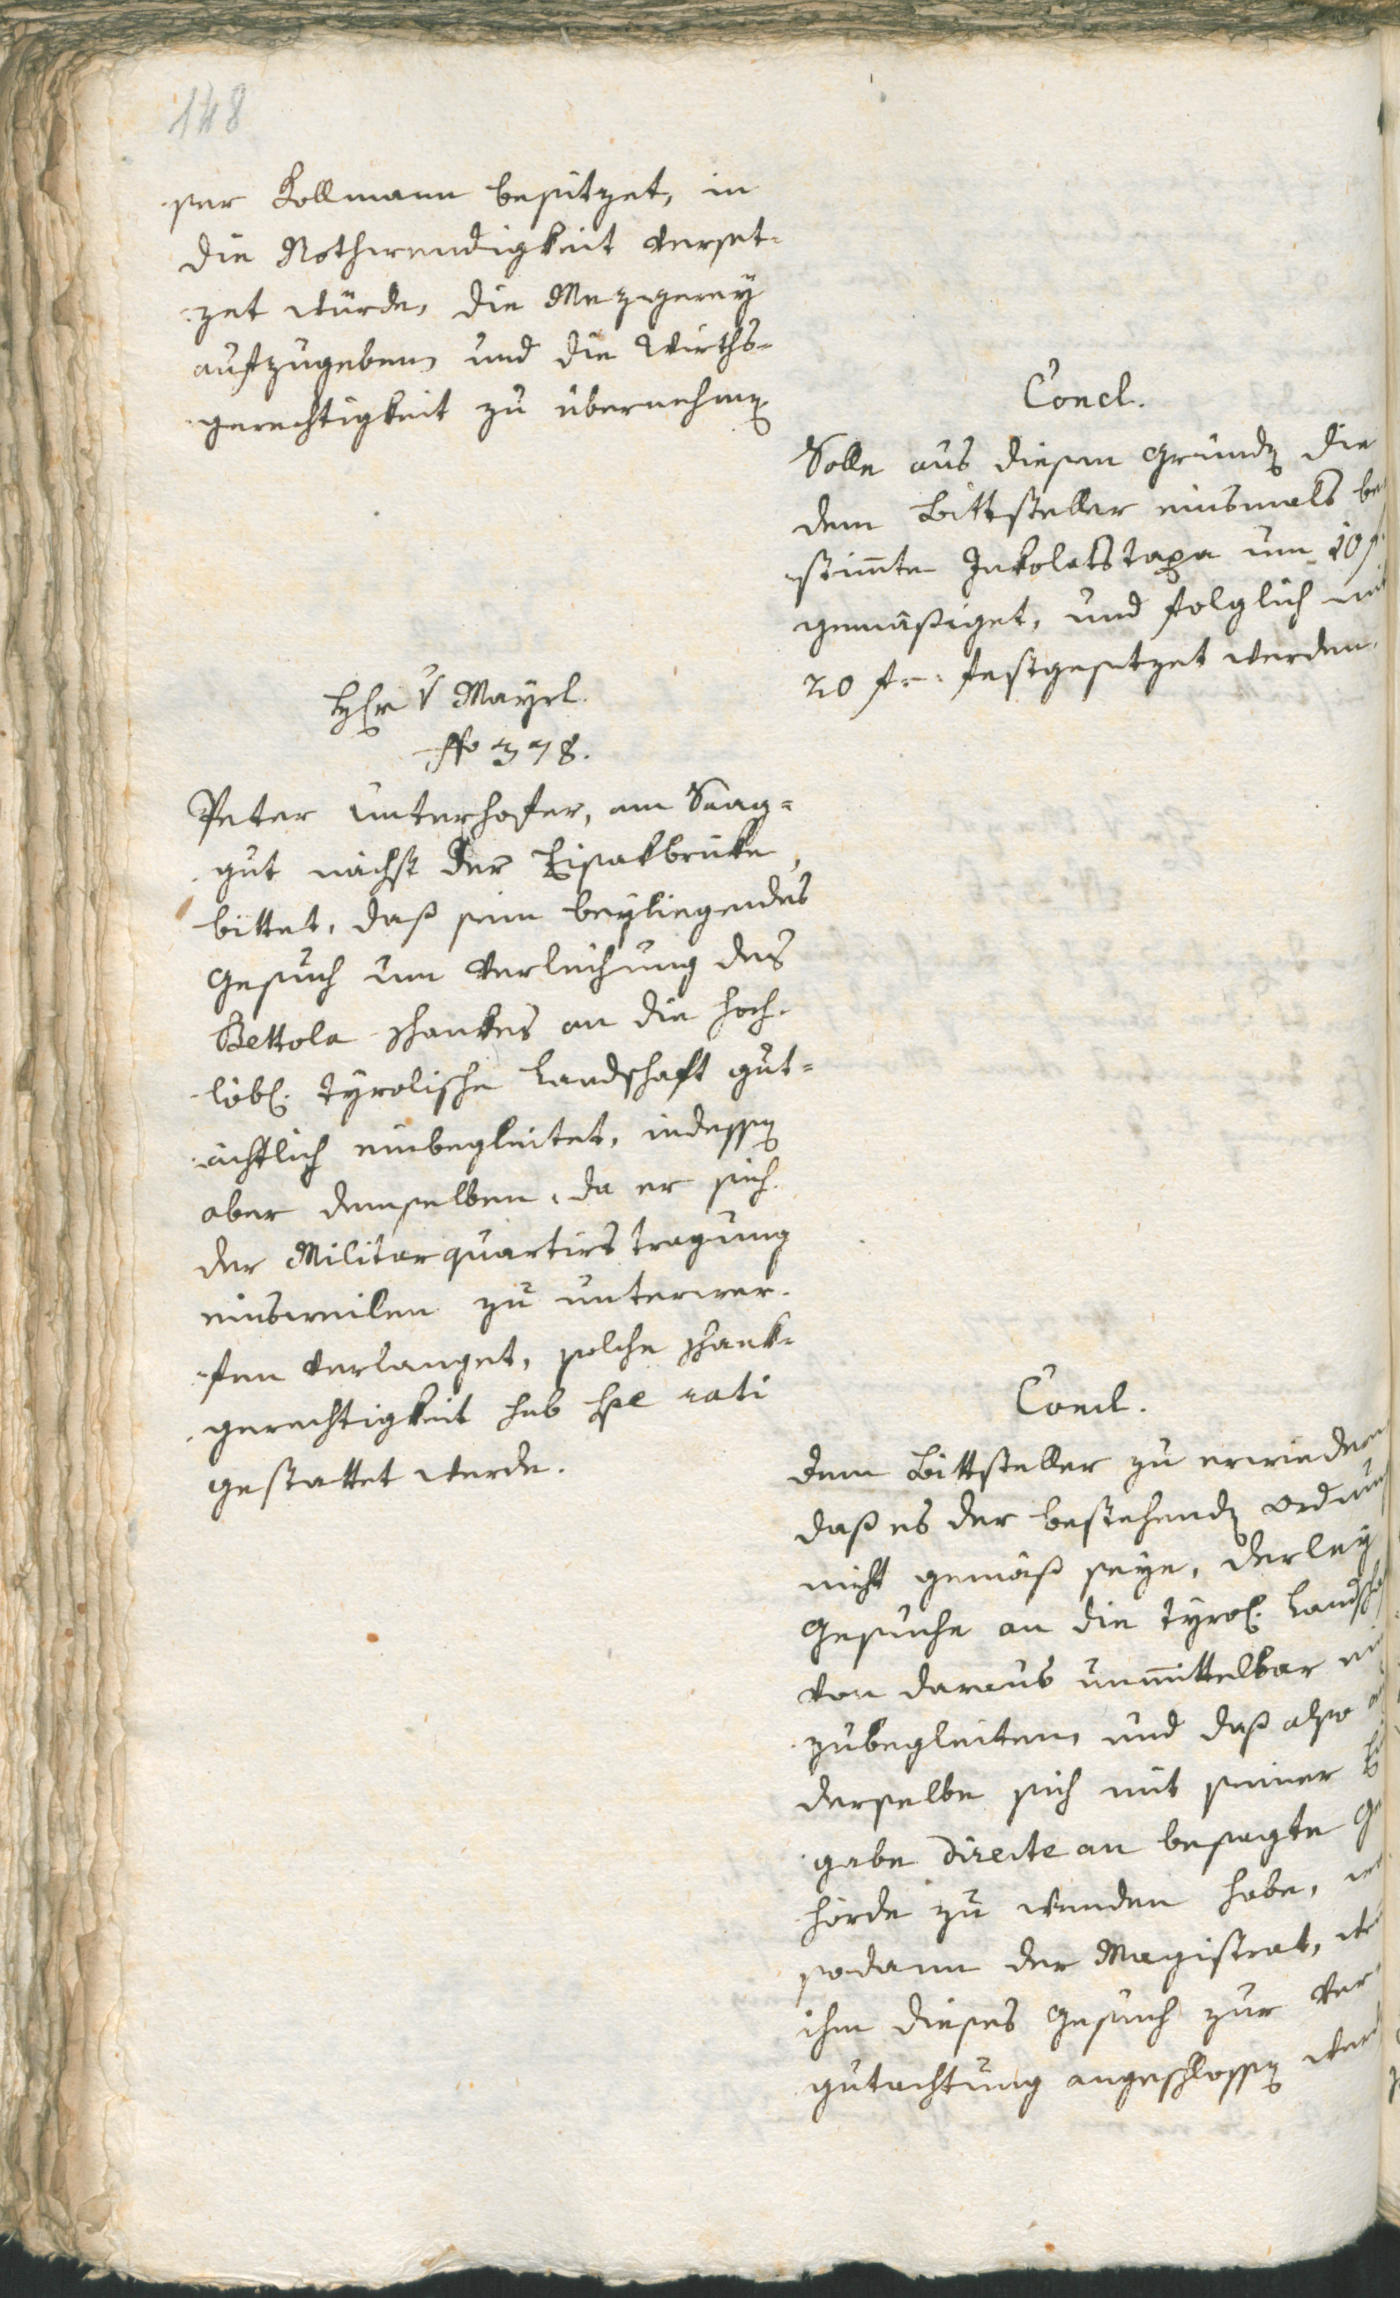 148
ser Kollmann besitzet, in
die Nothwendigkeit verset-
zet würde, die Mezgerey
aufzugeben, und die Wirths-
gerechtigkeit zu übernehmen
Concl.
Solle aus diesen Gründen die
dem Bittsteller einsmals be
stimmte Inkolatstaxa um 10 f
gemäßiget, und folglich mit
20 f. festgesetzet werden.
Hr. v Mayrl.
No 378.
Peter Unterhofer, am Saag=
gut nächst der Eisakbrüke,
bittet, daß sein beyliegendes
Gesuch um Verleihung des
Bettola schankes an die hoch-
löbl. tyrolische Landschaft gut=
ächtlich einbegleitet, indessen
aber demselben, da er sich
der Militarquartirs tragung
einsweilen zu unterwer-
fen verlanget, solche Schank-
gerechtigkeit sub spe rati
gestattet werde.
Concl.
Dem Bittsteller zu erwiedern
daß es der bestehenden Ordnung
nicht gemäß seye, derley
Gesuche an die tyrol. Landscha
von daraus unmittelbar ein
zubegleiten, und daß also
derselbe sich mit seiner Ein
gabe directe an besagte Ge
hörde zu wenden habe,
sodann der Magistrat,
ihm dieses Gesuch zur Ver
gutachtung angeschlossen werd